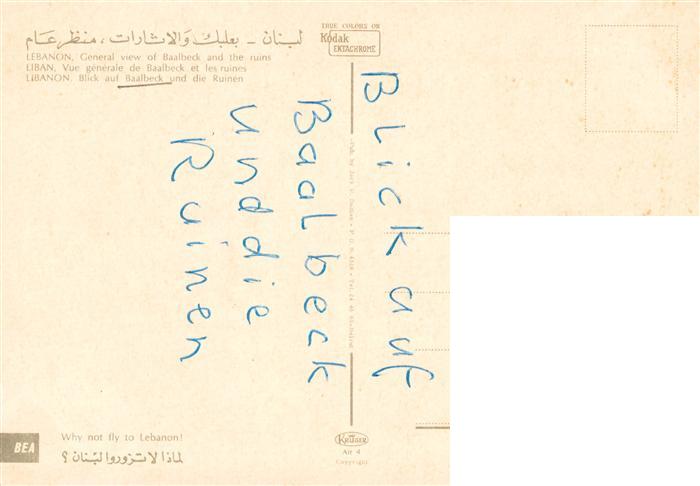 لبنان - بعلبك والاثارات، منظر عام
LEBANON, General view of Baalbeck and the ruins
LIBAN, Vue générale de Baalbeck et les ruines
LIBANON. Blick auf Baalbeck und die Ruinen
TRUE COLORS ON
Kodak
EKTACHROME
Blick auf
Baalbeck
und die
Ruinen
BEA
Why not fly to Lebanon!
لماذا لا تزوروا لبنان؟
KRÜGER
Air 4
Copyright